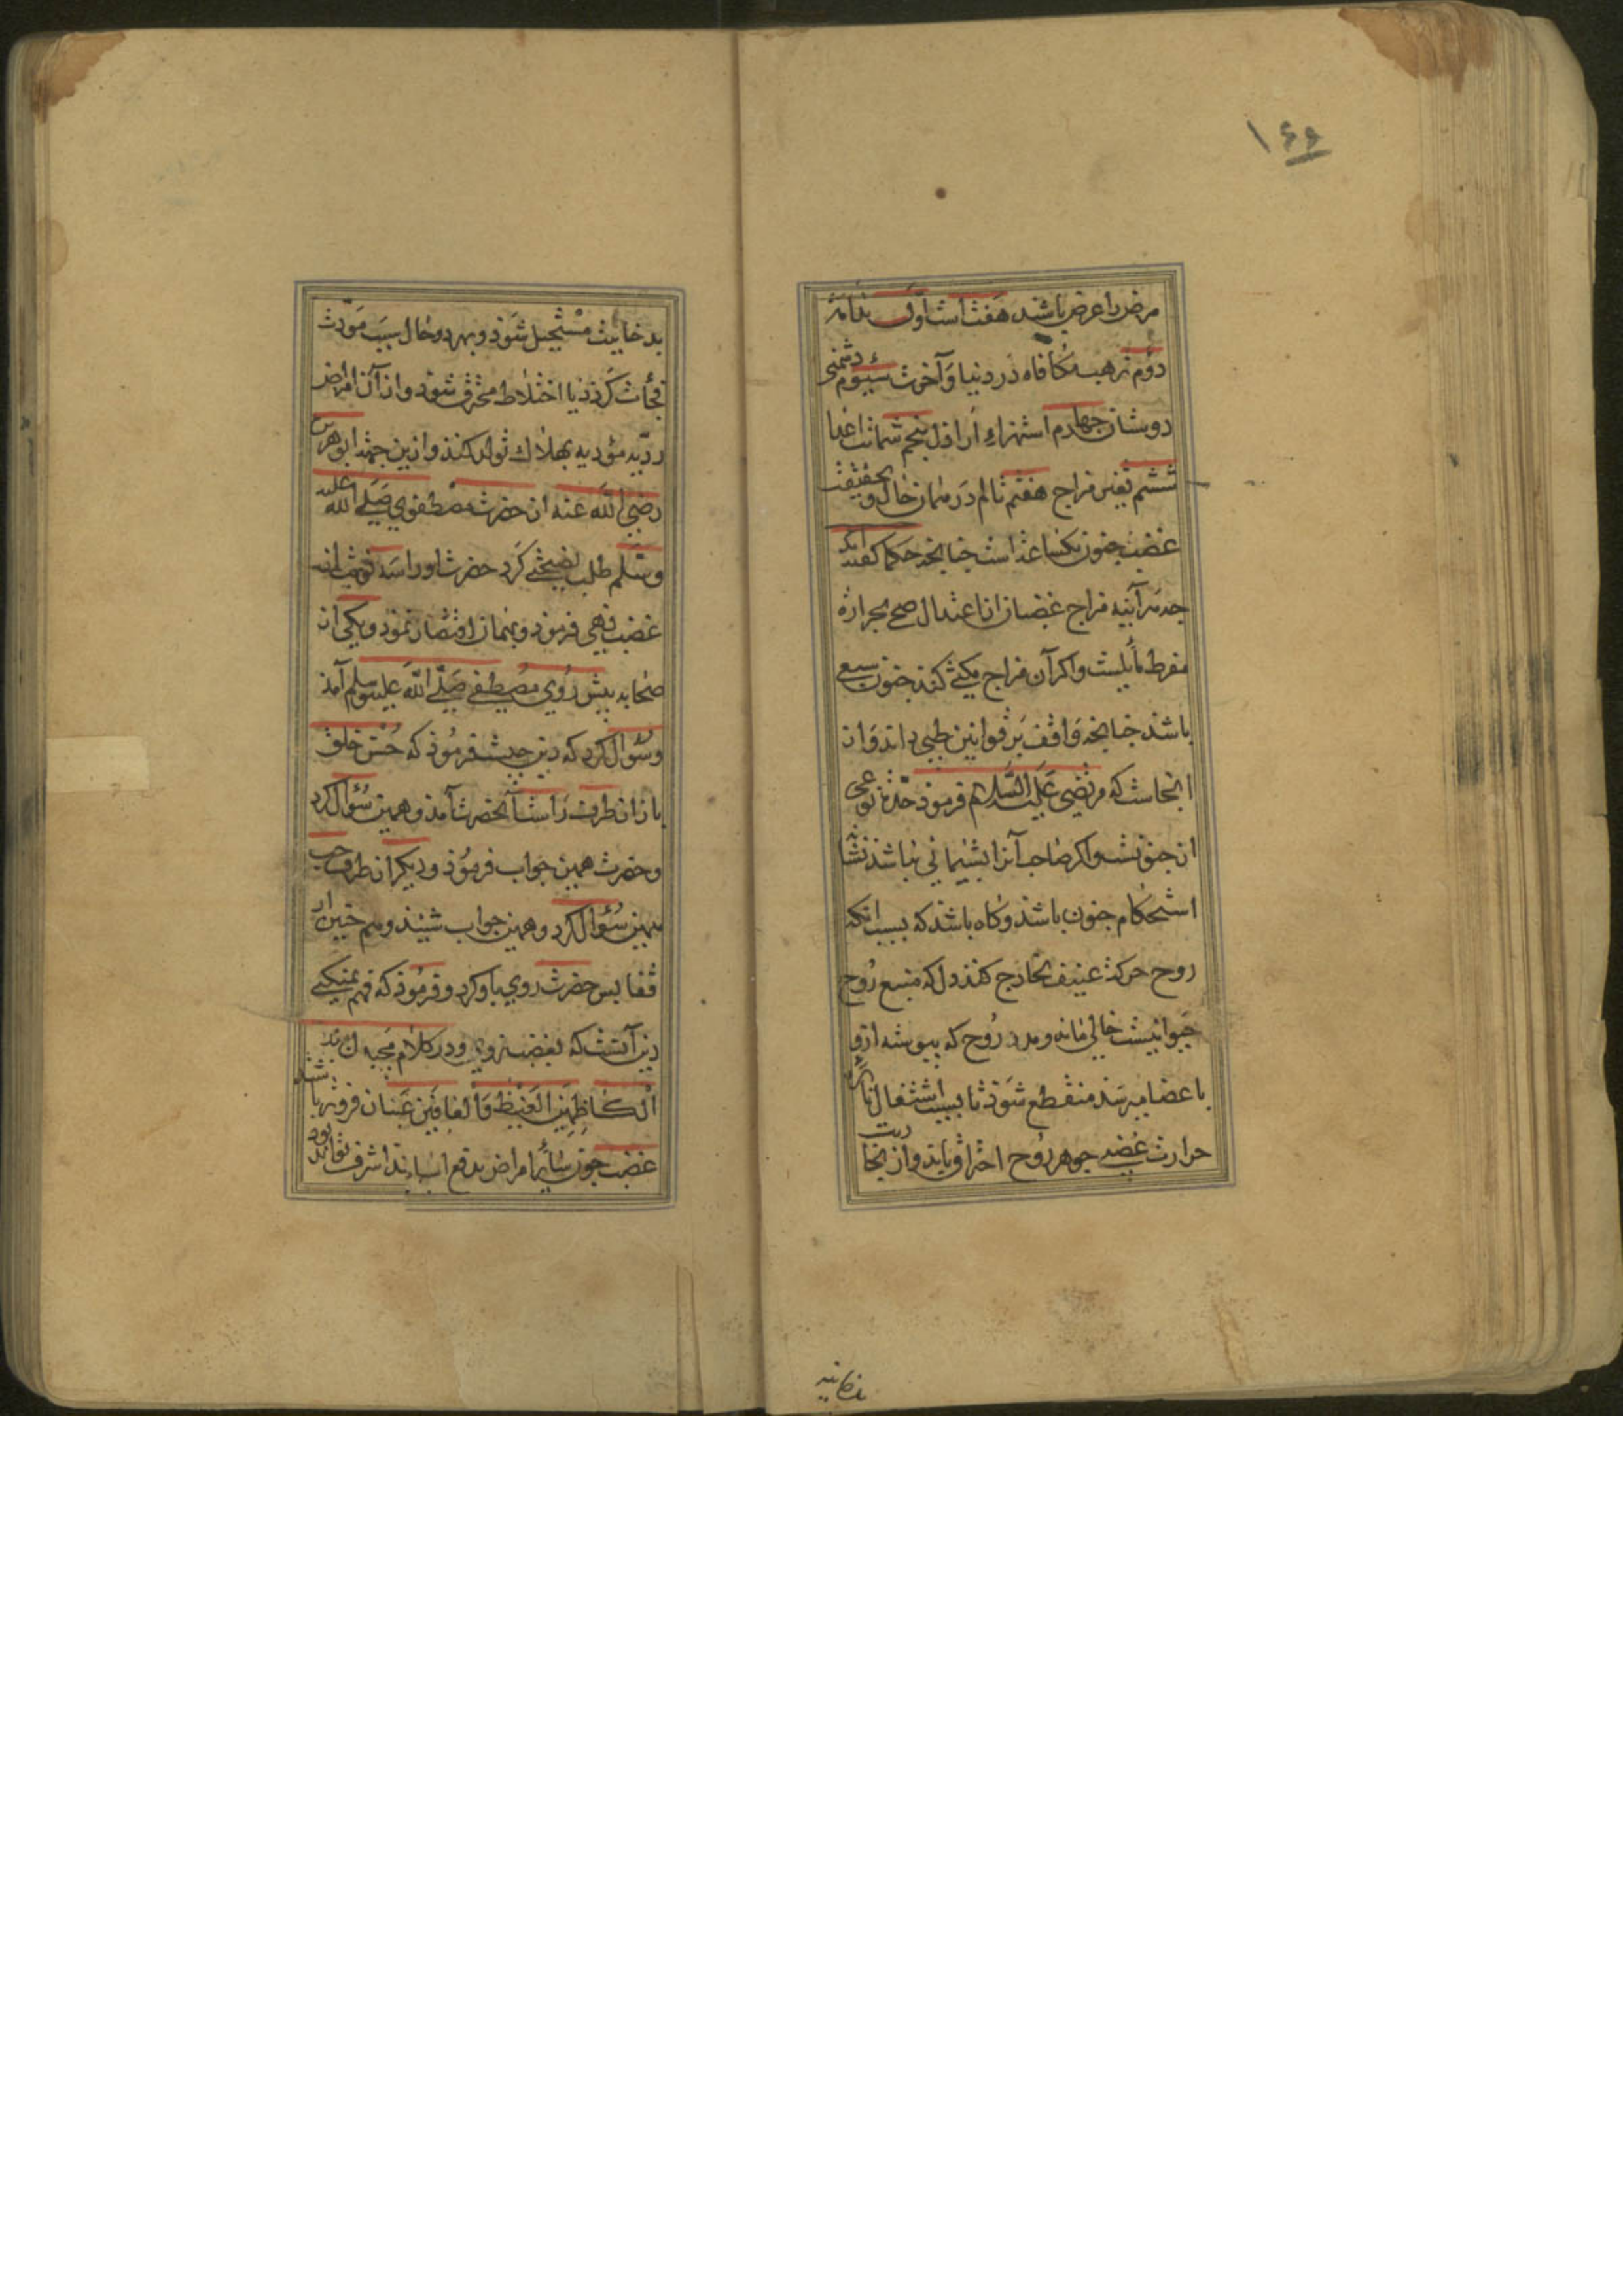 ۱۴۹
مرض را عرض باشند هفت است اول ندامة
دوم ترهیب مکافاة در دنیا و آخرت سیوم دشمنی
دوستان چهارم استهزاء اراذل پنجم شماتت اعدا
ششم تغیر مزاج هفتم تالم در همان حال و بحقیقت
غضب جنون یکساعتست چنانچه حکما گفته‌اند
چه سرآینه مزاج غضبان از اعتدال صحی بحرارة
مفرط مایلست و اکر آن مزاج مکث کند جنون سبعی
باشد چنانچه واقف بر قوانین طبی داند و از
انجاست که مرتضی علیه السلام فرمود حدّت نوعی
از جنونست و اکر صاحب آنرا پشیمانی نباشد نشانه
استحکام جنون باشد و کاه باشد که بسبب انکه
روح حرکت عنیف بخارج کند دل که منبع روح
حیوانیست خالی ماند و مدد روح که پیوسته ازو
باعضا میرسد منقطع شود تا بسبب اشتعال نایره
حرارت غضبی جوهر روح احتراق یابد و از بخاریت
بدخانیت مستحیل شود و بهر دو حال سبب مودث
فجأت کردد یا اختلاط محترق شود و از آن امراض
ردیه مؤدیه بهلاك تولد کند و ازین جهة ابوهریره
رضی الله عنه از حضرت مصطفوی صلی الله علیه
وسلم طلب نصیحتی کرد حضرت او را سه نوبت از
غضب نهی فرمود و بهمان اقتصار نمود و یکی از
صحابه پیش روی مصطفی صلی الله علیه وسلم آمد
و سؤال کرد که دین چیست فرمود که حسن خلق
باز از طرف راست آنحضرت آمد و همین سؤال کرد
و حضرت همین جواب فرمود و دیکر از طرف چپ
همین سؤال کرد و همین جواب شنید و هم چنین از
قفا پس حضرت روی باو کرد و فرمود که فهم نمیکنی
دین آنست که بغضب نروی و در کلام مجید
الکاظمین الغیظ والعافین عن الناس
غضب چون سایر امراض بدفع اسباب